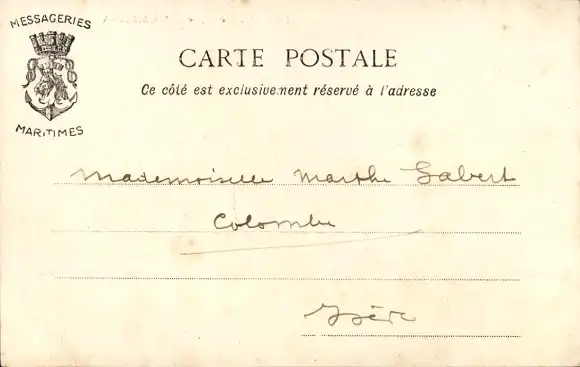 MESSAGERIES
MARITIMES
CARTE POSTALE
Ce côté est exclusivement réservé à l'adresse
Mademoiselle Marthe Gabert
Colombe
Isère